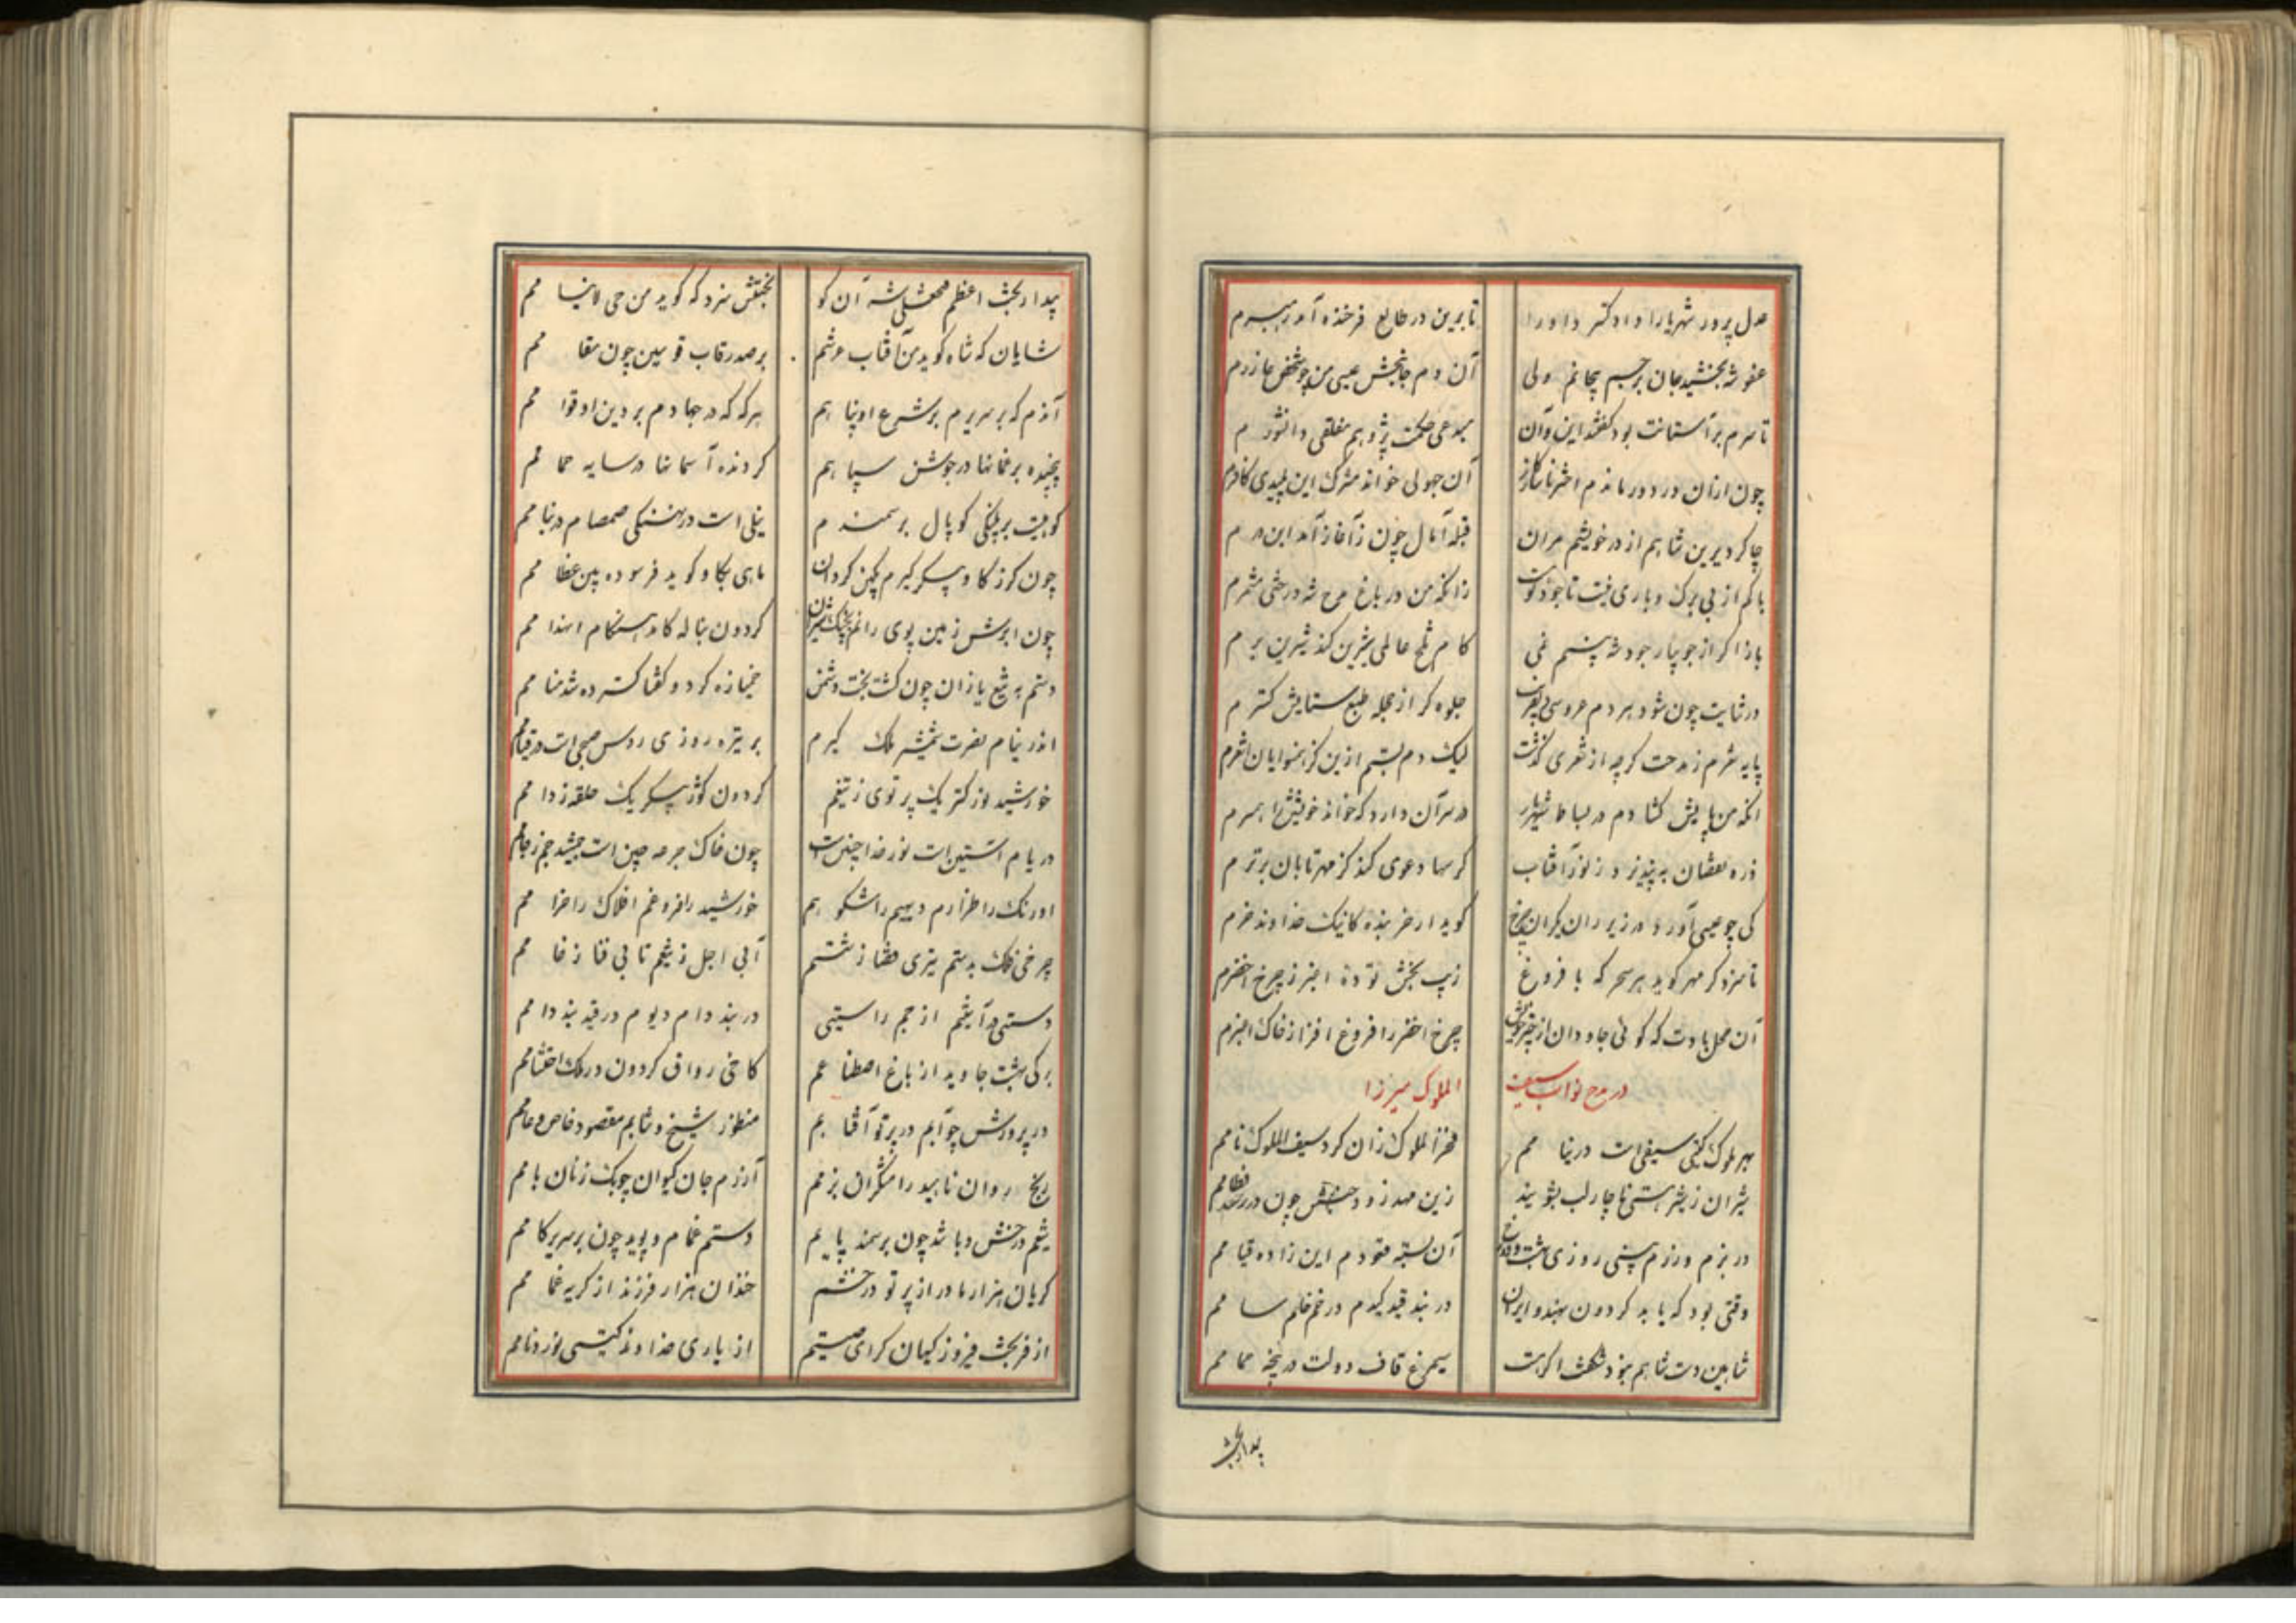 عدل پرور شهریارا داد گستر داورا تا برین در طالع فرخنده آمد رهبرم
عفو شه بخشید جان بر جسم بیجانم ولی آن دم جانبخش عیسی من چو شخص عازرم
تا سرم بر آستانت بود گفتند این و آن مبدعی حکمت پژوهم مفلقی دانشورم
چون ازان در دور ماندم اختر ناسازگار آن جهولی خواند مشرک این پلیدی کافرم
چاکر دیرین شاهم از در خویشم مران قبله آمال چون ز آغاز آمد این درم
باکم از بی برک و باری نیست تا جود تو هست زانکه من در باغ مدح شه درختی مثمرم
بارد ار از جویبار جود شه بیند نمی کام تلخ عالمی شیرین کند شیرین برم
در ثنایت چون شود هر دم عروسی بی نقاب جلوه گر از حجله طبع ستایش گسترم
پایه شعرم ز مدحت گرچه از شعری گذشت لیک دم بستم ازین کز همنوایان اشعرم
آنکه من پایش گشادم در بساط شهریار در سر آن دارد که خواند خویش را همسرم
ذره نقصان نپذیرد ز نور آفتاب گر سها دعوی کند کز مهر تابان برترم
کی چو عیسی آورد در زیر ران یکران چرخ گوید ار خر بنده کاینک خداوند خرم
تا سزد گر مهر گوید هر سحر که با فروغ زیب بخش توده اغبر ز چرخ اخضرم
آن محل بادت که گوئی جاودان از چتر خویش چرخ اخضر را فروغ افزا ز خاک اغبرم
در مدح نواب سیف الملوک میرزا
بهر ملوک گیتی سیفی است در نیامم فخر الملوک زان کرد سیف الملوک نامم
شیران ز شیر هستی ناچار لب بشویند زین مهد زود جنبش چون در رسد فطامم
در بزم و رزم بینی روزی بهشت و دوزخ آن بسته قعودم این زاده قیامم
وقتی بود که یابد گردون بهند و ایران در بند قید کیدم در خم خام سامم
شاهین دست شاهم نبود شگفت اگر هست سیمرغ قاف دولت در پنجه حمامم
بیدار بخت
بیدار بخت اعظم محتشلی شه آن کو بختش سزد که گوید من حی لاینامم
شایان که شاه گوید من آفتاب عرشم بر صدر قاب قوسین چون مقامم
آندم که بر سریرم بر شرع او پناهم هر که که در جهادم بر دین او قوامم
پیچیده بر عنانها در جوشن سپاهم گردنده آسمانها در سایه حمامم
کوهیست بر پلنگی کوپال بر سمندم نیلی است در نهنگی صمصام در نیامم
چون گرز گاو پیکر گیرم بکین گردان ماهی بگاو گوید فرسوده بین عظامم
چون ابرش زمین پوی رانم بجنگ شیران گردون بناله کامد هنگام انهدامم
دستم به تیغ یازان چون گشت بخت دشمن خمیازه کرد و گفتا گسترده شد منامم
اندر نیام نصرت شمشیر ملک گیرم بر تیره روزی روس صبحی است در قیامم
خورشید نور گستر یک پرتوی ز تیغم گردون کوژ پیکر یک حلقه ز دامم
در یام آستین است نور خدا جبین است چون خاک جرعه چین است جمشید جم ز جامم
اورنگ را طرازم دیهیم را شکوهم خورشید را فروغم افلاک را خرامم
چرخی فلک بدستم تیری قضا ز شستم آبی اجل ز تیغم تابی فنا ز فامم
دستی در آستینم از جم راستینی در بند دام دیوم در قید بند دامم
برگی بهشت جاوید از باغ اصطناعم کاخی رواق گردون در ملک احتشامم
در پرورش چو آبم در پرتو آفتابم منظور شیخ و شابم مقصود خاص و عامم
ریخ روان ناهید رامشگران بزمم آرزم جان کیوان چوبک زنان بامم
تیغم درخش و باشد چون بر سمند پایم دستم غمام و پوید چون بر سریر گامم
گریان هزار مادر از پرتو درخشم خندان هزار فرزند از گریه غمامم
از فر بخت فیروز کیهان گرای صیتم از یاری خداوند گیتی نورد نامم